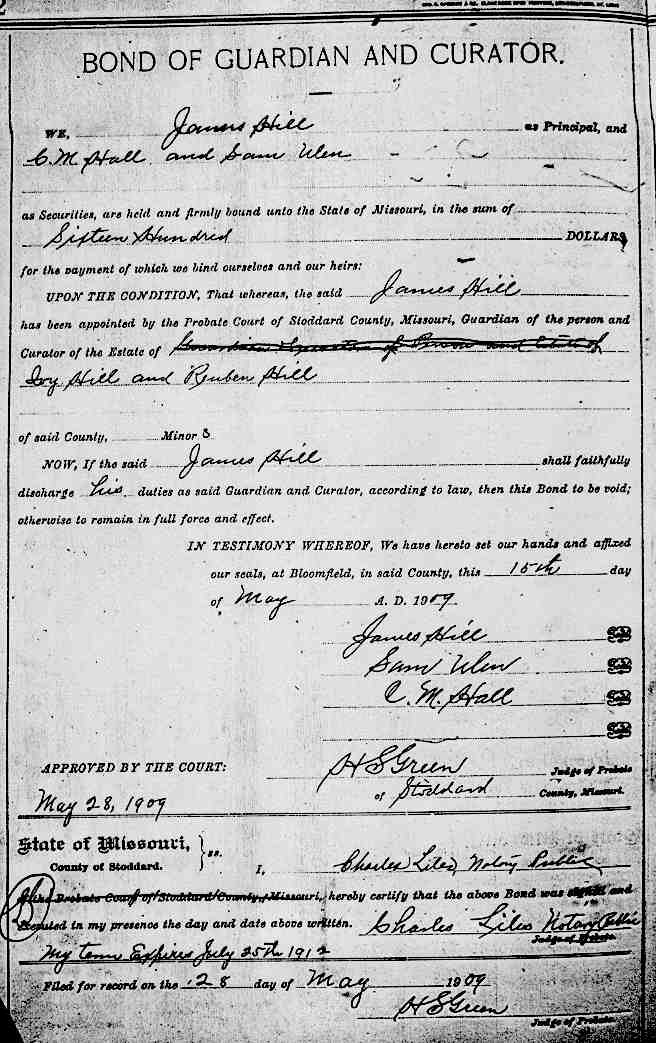 BOND OF GUARDIAN AND CURATOR.
WE, James Hill as Principal, and
C. M. Hall and Sam Ulen
as Securities, are held and firmly bound unto the State of Missouri, in the sum of
Sixteen Hundred DOLLARS,
for the payment of which we bind ourselves and our heirs:
UPON THE CONDITION, That whereas, the said James Hill
has been appointed by the Probate Court of Stoddard County, Missouri, Guardian of the person and
Curator of the Estate of of Person and Estate of
Ivy Hill and Reuben Hill
of said County, Minors
NOW, If the said James Hill shall faithfully
discharge his duties as said Guardian and Curator, according to law, then this Bond to be void;
otherwise to remain in full force and effect.
IN TESTIMONY WHEREOF, We have hereto set our hands and affixed
our seals, at Bloomfield, in said County, this 15th day
of May A. D. 1909.
James Hill
Sam Ulen
C. M. Hall
APPROVED BY THE COURT: H S Green Judge of Probate
May 28, 1909 of Stoddard County, Missouri.
State of Missouri, ss.
County of Stoddard. I, Charles Liles, Notary Public
of the Probate Court of Stoddard County, Missouri, hereby certify that the above Bond was signed and
executed in my presence the day and date above written. Charles Liles Notary Public
Judge of Probate.
My term Expires July 25th 1912
Filed for record on the 28 day of May 1909
H S Green
Judge of Probate.